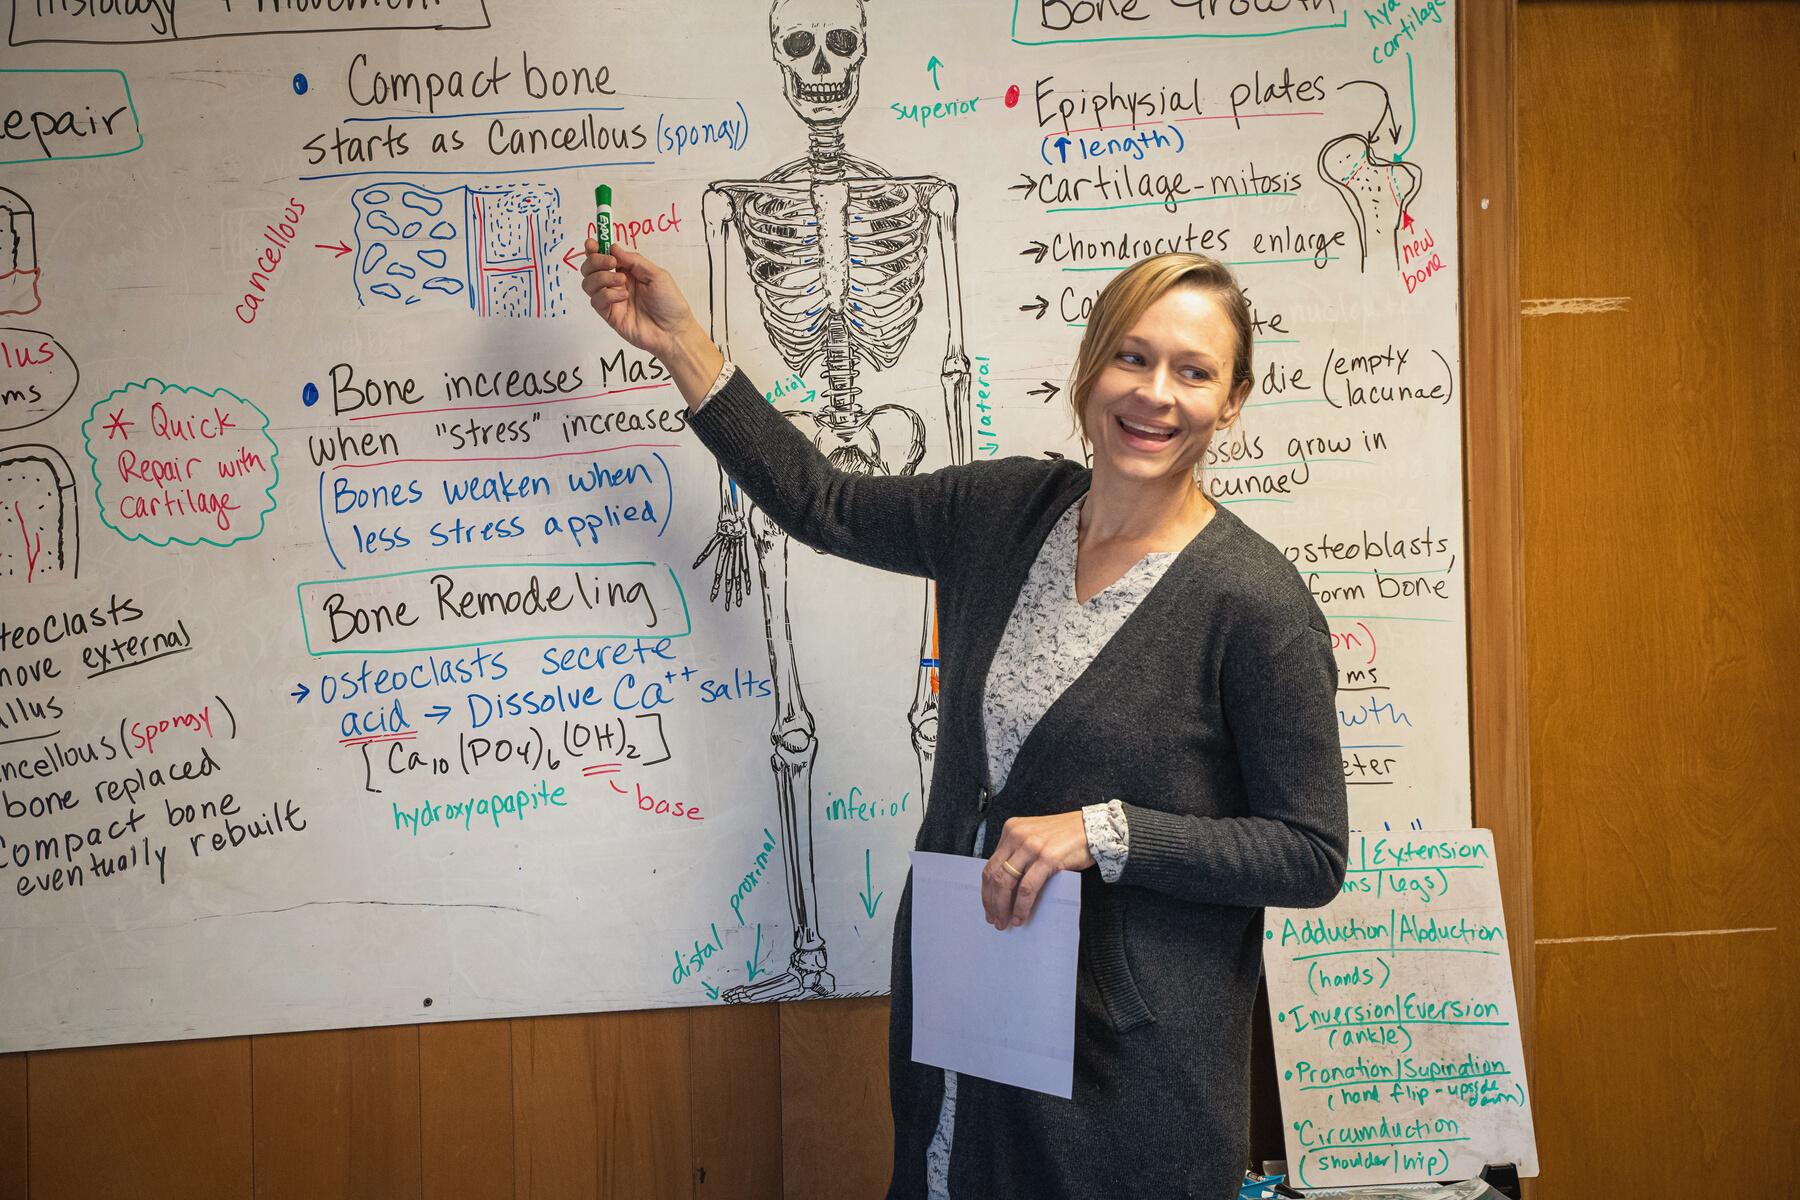 Histology + Movement
epair
lus
ms
* Quick
Repair with
cartilage
teoclasts
move external
allus
ncellous (spongy)
bone replaced
Compact bone
eventually rebuilt
Compact bone
starts as Cancellous (spongy)
cancellous
mpact
Expo
Bone increases Mass
when "stress" increases
(Bones weaken when
less stress applied)
Bone Remodeling
→ osteoclasts secrete
acid → Dissolve Ca++ salts
[Ca10(PO4)6(OH)2]
hydroxyapapite
base
superior
edial
lateral
inferior
proximal
distal
Bone Growth
hya
cartilage
Epiphysial plates
(↑ length)
→ Cartilage-mitosis
→ Chondrocytes enlarge
→ Ca
te
new
bone
→ die (empty
lacunae)
ssels grow in
cunae
osteoblasts,
form bone
on)
ms
wth
eter
/Extension
ms/legs)
• Adduction/Abduction
(hands)
• Inversion/Eversion
(ankle)
• Pronation/Supination
(hand flip-upside
down)
• Circumduction
(shoulder/hip)